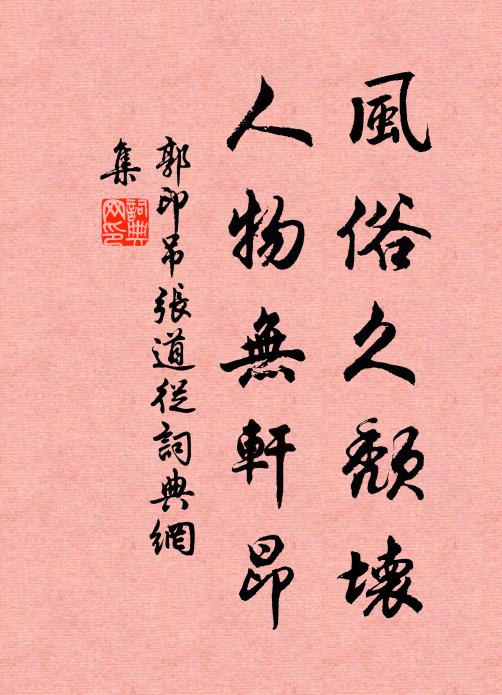 風俗久頹壞
人物無軒昂
郭印吊張道從詞典網
集
詞典
网印